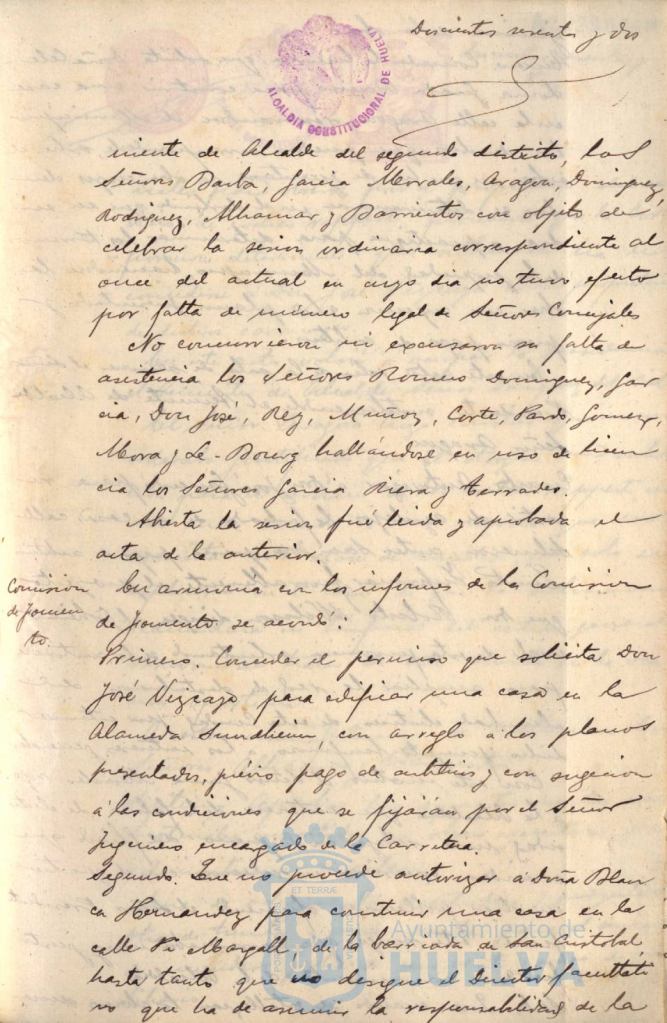 Doscientos sesenta y dos
ALCALDIA CONSTITUCIONAL DE HUELVA
niente de Alcalde del segundo distrito, los
Señores Barba, Garcia Morales, Aragon, Dominguez,
Rodriguez, Alhamar y Barrientos con objeto de
celebrar la sesion ordinaria correspondiente al
once del actual en cuyo dia no tuvo efecto
por falta de número legal de Señores Concejales
No concurrieron ni excusaron su falta de
asistencia los Señores Romero Dominguez, Gar
cia, Don José, Rey, Muñoz, Corte, Pardo, Gomez,
Mora y Le-Bourg hallándose en uso de licen
cia los Señores Garcia Riera y Terrades.
Abierta la sesion fué leida y aprobada el
acta de la anterior.
Comision
de Fomen
to.
En armonia con los informes de la Comision
de Fomento se acordó:
Primero. Conceder el permiso que solicita Don
José Vizcayo para edificar una casa en la
Alameda Sundheim, con arreglo a los planos
presentados, prévio pago de arbitrios y con sugecion
á las condiciones que se fijarán por el Señor
Ingeniero encargado de la Carretera.
Segundo. Que no procede autorizar a Doña Blan
ca Hernandez para construir una casa en la
calle Pi Margall, de la barriada de San Cristobal,
hasta tanto que no designe el Director facultati
vo que ha de asumir la responsabilidad de la
Ayuntamiento de
HUELVA